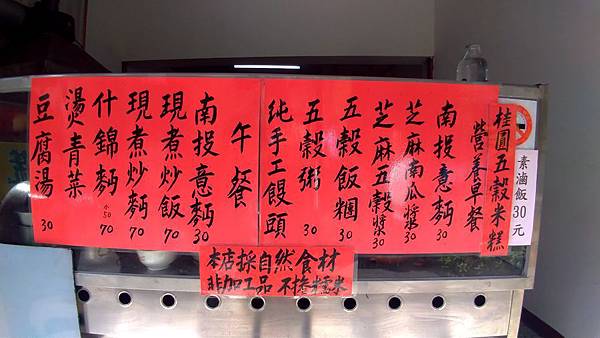 桂圓五穀米糕
素滷飯30元
營養早餐
南投意麵 30
芝麻南瓜漿 30
芝麻五穀漿 30
五穀飯糰 30
五穀粥 30
純手工饅頭
午餐
南投意麵 30
現煮炒飯 70
現煮炒麵 70
什錦麵 小50 70
燙青菜
豆腐湯 30
本店採自然食材
非加工品 不摻糯米